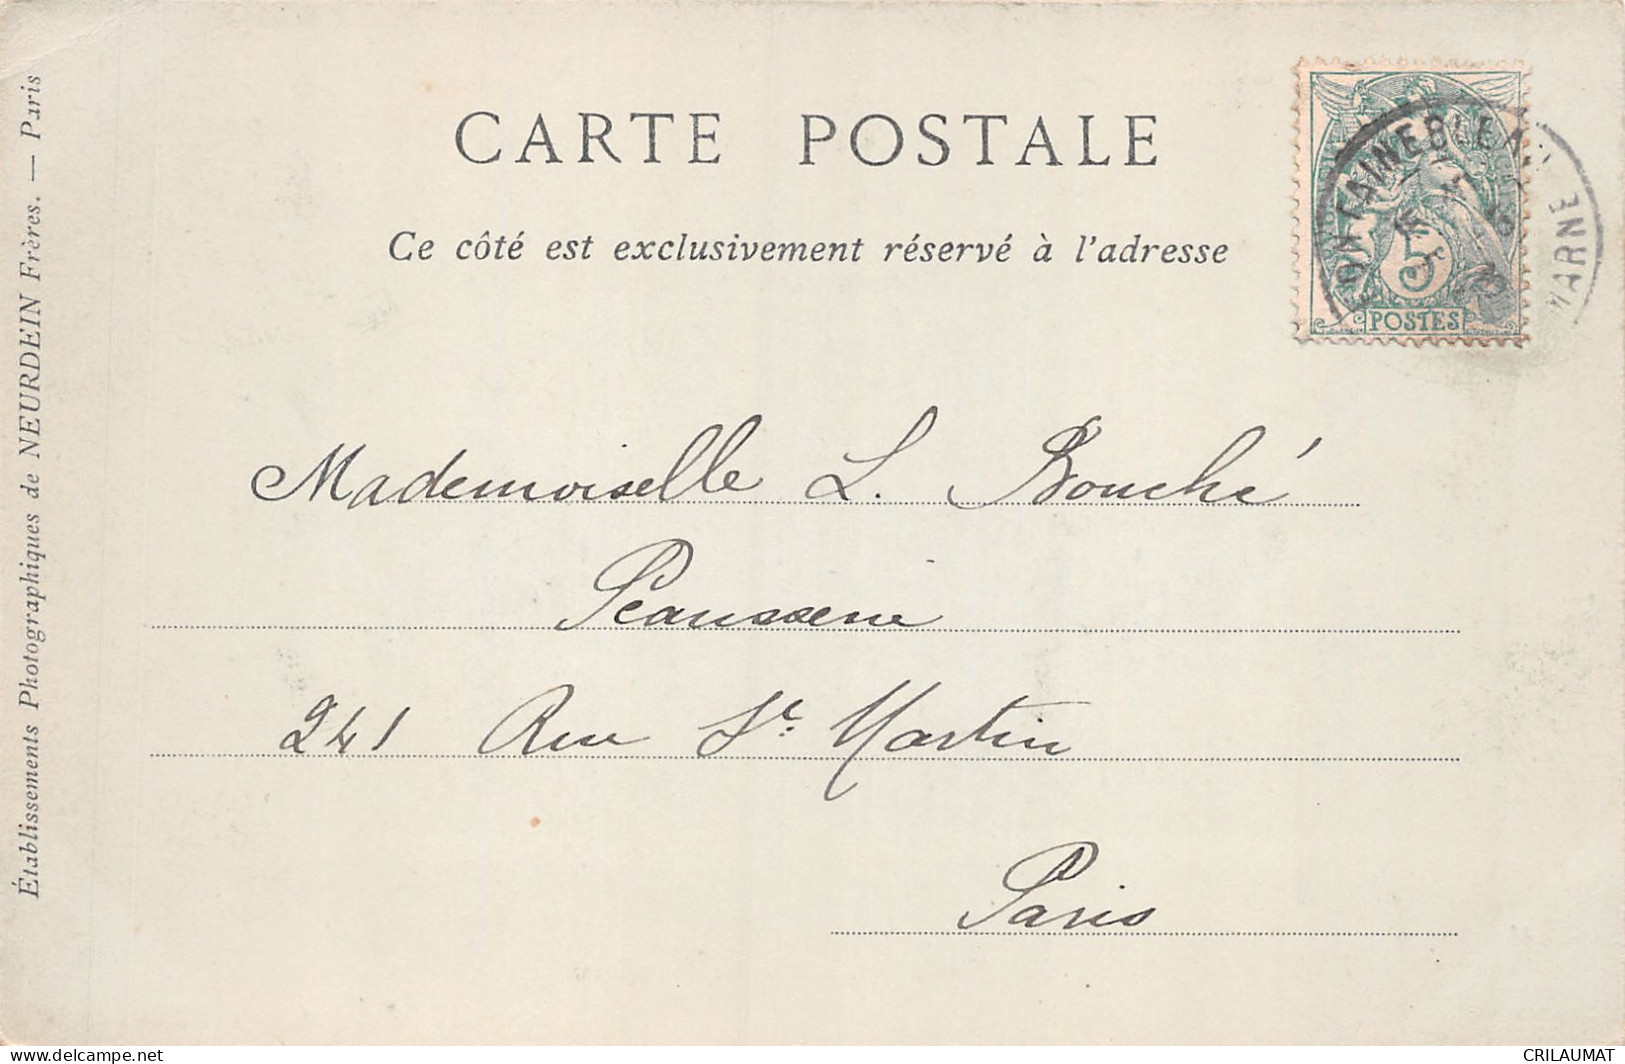 CARTE POSTALE
Ce côté est exclusivement réservé à l'adresse
Établissements Photographiques de NEURDEIN Frères. — Paris
FONTAINEBLEAU
MARNE
5
POSTES
Mademoiselle L. Bouché
Peausserie
241 Rue St. Martin
Paris
delcampe.net
CRILAUMAT